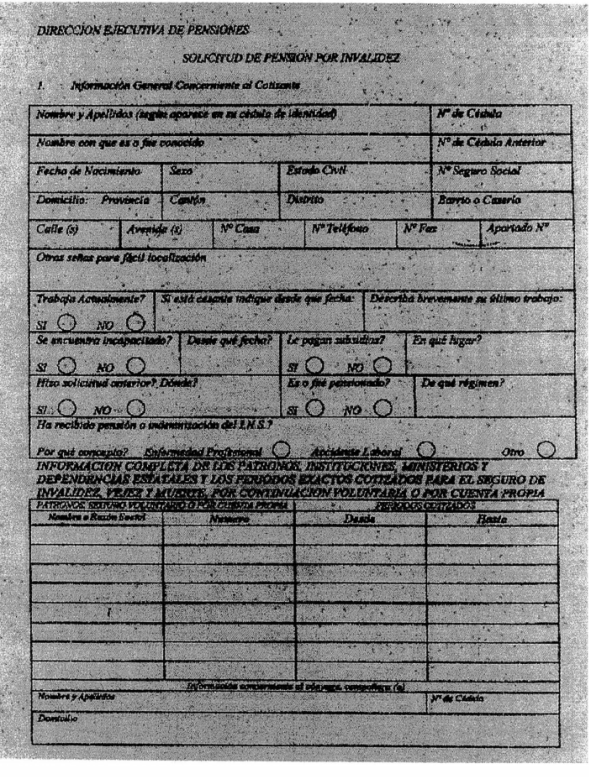 DIRECCION EJECUTIVA DE PENSIONES
SOLICITUD DE PENSION POR INVALIDEZ
1. Información General Concerniente al Cotizante
Nombre y Apellidos (según aparece en su cédula de identidad) Nº de Cédula
Nombre con que es o fue conocido Nº de Cédula Anterior
Fecha de Nacimiento Sexo Estado Civil Nº Seguro Social
Domicilio: Provincia Cantón Distrito Barrio o Caserío
Calle (s) Avenida (s) Nº Casa Nº Teléfono Nº Fax Apartado Nº
Otras señas para fácil localización
Trabaja Actualmente? Si está cesante indique desde que fecha: Describa brevemente su último trabajo:
SI NO
Se encuentra incapacitado? Desde qué fecha? Le pagan subsidios? En qué lugar?
SI NO SI NO
Hizo solicitud anterior? Dónde? Es o fué pensionado? De qué régimen?
SI NO SI NO
Ha recibido pensión o indemnización del I.N.S.?
Por qué concepto? Enfermedad Profesional Accidente Laboral Otro
INFORMACION COMPLETA DE LOS PATRONOS, INSTITUCIONES, MINISTERIOS Y
DEPENDENCIAS ESTATALES Y LOS PERIODOS EXACTOS COTIZADOS PARA EL SEGURO DE
INVALIDEZ, VEJEZ Y MUERTE, POR CONTINUACION VOLUNTARIA O POR CUENTA PROPIA
PATRONOS, SEGURO VOLUNTARIO O POR CUENTA PROPIA PERIODOS COTIZADOS
Nombre o Razón Social Número Desde Hasta
Información concerniente al cónyuge, compañero (a)
Nombre y Apellidos Nº de Cédula
Domicilio